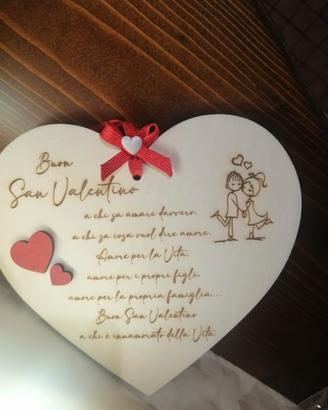 Buon
San Valentino
a chi sa amare davvero,
a chi sa cosa vuol dire amore.
Amore per la Vita,
amore per i propri figli,
amore per la propria famiglia...
Buon San Valentino
a chi è innamorato della Vita